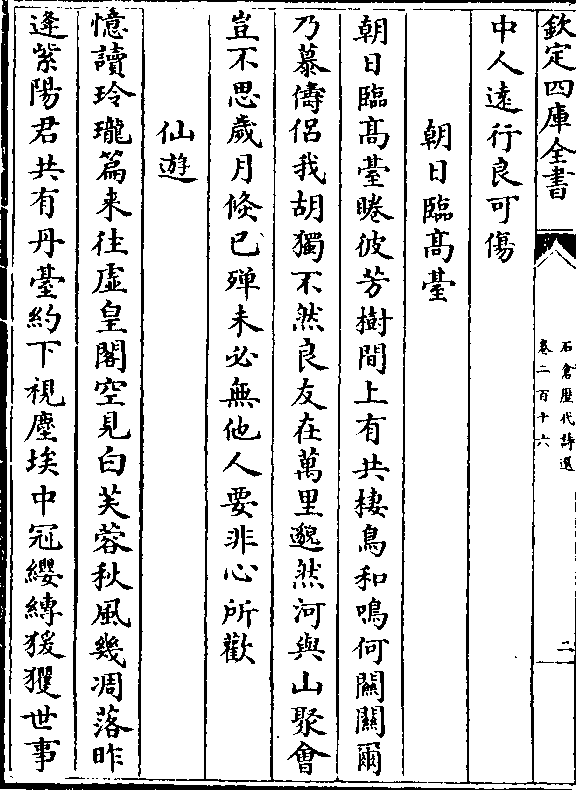 欽定四庫全書
石倉歷代詩選
卷二百十六
二
中人遠行良可傷
朝日臨髙臺
朝日臨髙臺睠彼芳樹間上有共棲鳥和鳴何關關爾
乃慕儔侣我胡獨不然良友在萬里邈然河與山聚會
豈不思歲月倐已殫未必無他人要非心所歡
仙遊
憶讀玲瓏篇来往虚皇閣空見白芙蓉秋風幾凋落昨
逢紫陽君共有丹臺約下視塵埃中冠纓縛猨玃世事